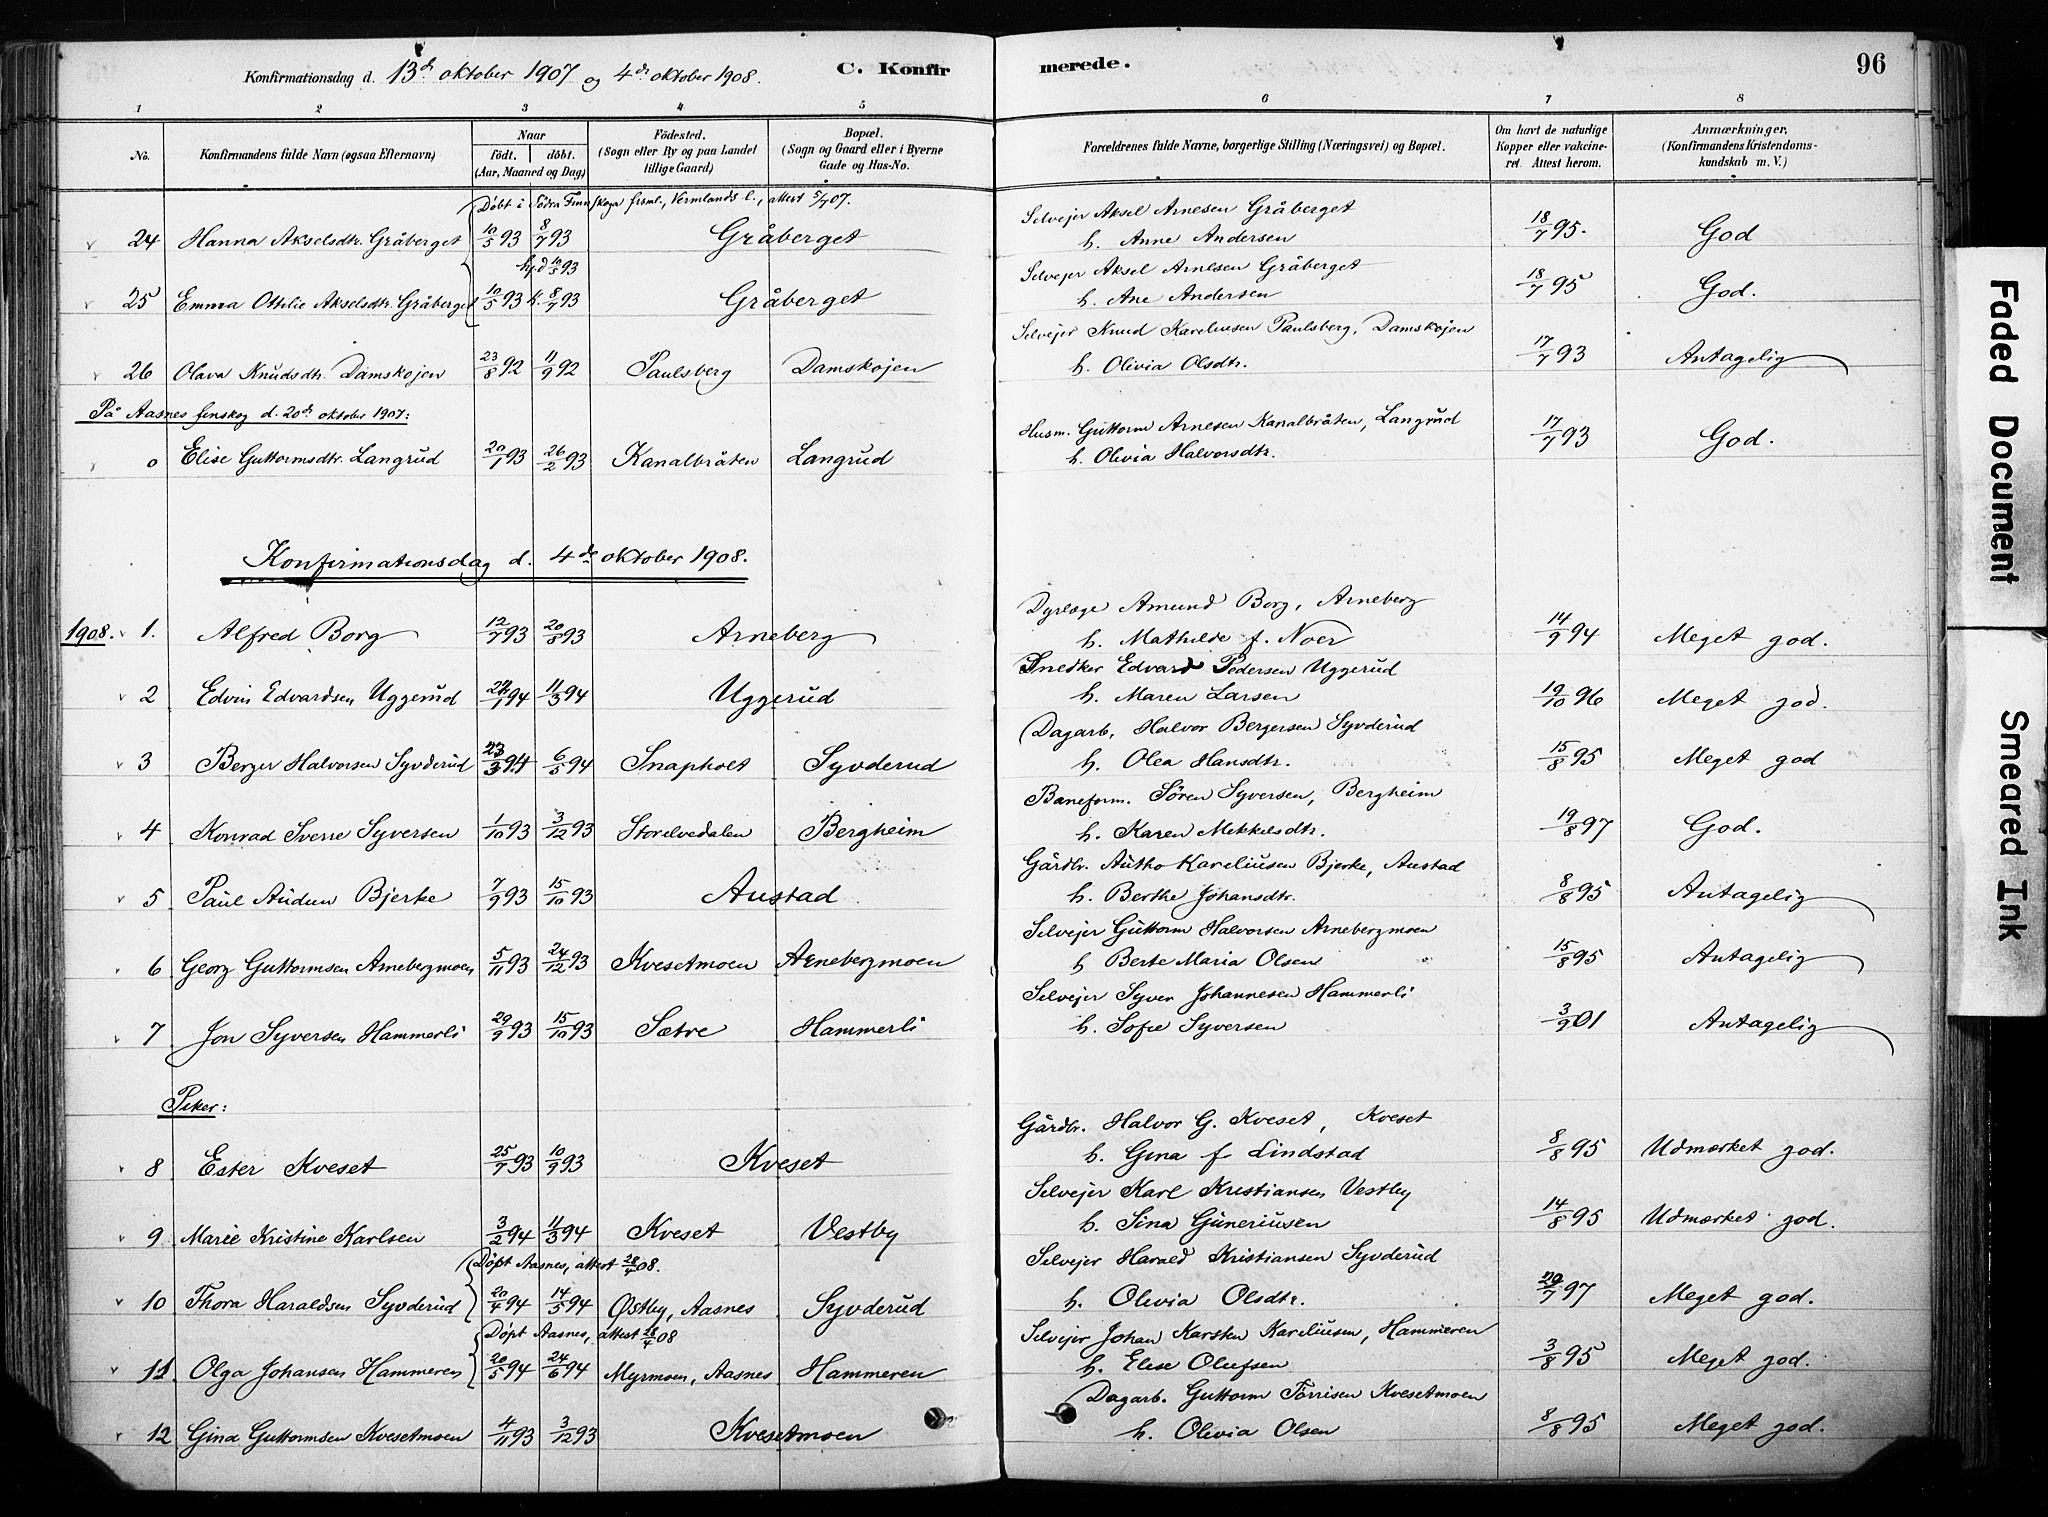 Konfirmationsdag d. 13de oktober 1907 og 4de oktober 1908. C. Konfirmerede. 96
1 2 3 4 5 6 7 8
No. Konfirmandens fulde Navn (ogsaa Efternavn) Naar født. døbt. (Aar, Maaned og Dag) Födested. (Sogn eller By og paa Landet tillige Gaard) Bopæl. (Sogn og Gaard eller i Byerne Gade og Hus-No. Forældrenes fulde Navne, borgerlige Stilling (Næringsvei) og Bopæl. Om havt de naturlige Kopper eller vakcineret. Attest herom. Anmærkninger, (Konfirmandens Kristendomskundskab m. V.)
Döbt i Södra Finnskoga försml., Vermlands l., attest 5/7 07.
24 Hanna Akselsdtr. Gråberget 10/5 93 8/7 93 Gråberget Selvejer Aksel Arnesen Gråberget h. Anne Andersen 18/7 95. God
hj.d 10/5 93
25 Emma Otilie Akselsdtr. Gråberget 10/5 93 k. 8/7 93 Gråberget Selvejer Aksel Arnesen Gråberget h. Ane Andersen 18/7 95 God.
26 Olava Knudsdtr. Damskojen 23/8 92 11/9 92 Paulsberg Damskojen Selvejer Knud Kareliusen Paulsberg, Damskojen h. Olivia Olsdtr. 17/7 93 Antagelig
På Aasnes finskog d. 20de oktober 1907:
0 Elise Guttormsdtr. Langrud 20/1 93 26/2 93 Kanalbråten Langrud Husm. Guttorm Arnesen Kanalbråten, Langrud h. Olivia Halvorsdtr. 17/7 93 God.
Konfirmationsdag d. 4de oktober 1908.
1908. 1. Alfred Borg 12/7 93 20/8 93 Arneberg Dyrlæge Amund Borg, Arneberg h. Mathilde f. Noer 14/9 94 Meget god.
2 Edvin Edvardsen Uggerud 94 11/3 94 Uggerud Snedker Edvard Pedersen Uggerud h. Maren Larsen 19/10 96 Meget god.
3 Berger Halvorsen Syvderud 23/3 94 6/5 94 Snapholt Syvderud Dagarb. Halvor Bergersen Syvderud h. Olea Hansdtr. 15/8 95 Meget god
4 Konrad Sverre Syversen 1/10 93 3/12 93 Storelvedalen Bergheim Baneform. Sören Syversen, Bergheim h. Karen Mekkelsdtr. 19/8 97 God.
5 Paul Audun Bjerke 7/9 93 15/10 93 Austad Gårdbr. Autho Kareliusen Bjerke, Austad h. Berthe Johansdtr. 8/8 95 Antagelig
6 Georg Guttormsen Arnebergmoen 5/11 93 24/12 93 Kvesetmoen Arnebergmoen Selvejer Guttorm Halvorsen Arnebergmoen h Berte Maria Olsen 15/8 95 Antagelig
7 Jon Syversen Hammerli 29/9 93 15/10 93 Sætre Hammerli Selvejer Syver Johannesen Hammerli h. Sofie Syversen 3/9 01 Antagelig
Piker:
8 Ester Kveset 25/7 93 10/9 93 Kveset Gårdbr. Halvor G. Kveset, Kveset h. Gina f Lindstad 8/8 95 Udmærket god.
9 Marie Kristine Karlsen 3/2 94 11/3 94 Kveset Vestby Selvejer Karl Kristiansen Vestby h. Sina Guneriusen 14/8 95 Udmærket god.
Döpt Aasnes, attest 28/4 08.
10 Thora Haraldsen Syvderud 20/4 94 14/5 94 Østby, Aasnes Syvderud Selvejer Harald Kristiansen Syvderud h. Olivia Olsdtr. 29/7 97 Meget god.
Döpt Aasnes, attest 28/4 08
11 Olga Johansen Hammeren 20/5 94 24/6 94 Myrmoen, Aasnes Hammeren Selvejer Johan Karsten Kareliusen, Hammeren h. Elise Olufsen 3/8 95 Meget god.
12 Gina Guttormsen Kvesetmoen 4/11 93 3/12 93 Kvesetmoen Dagarb. Guttorm Törrisen Kvesetmoen h. Olivia Olsen 8/8 95 Meget god.
Faded Document
Smeared Ink